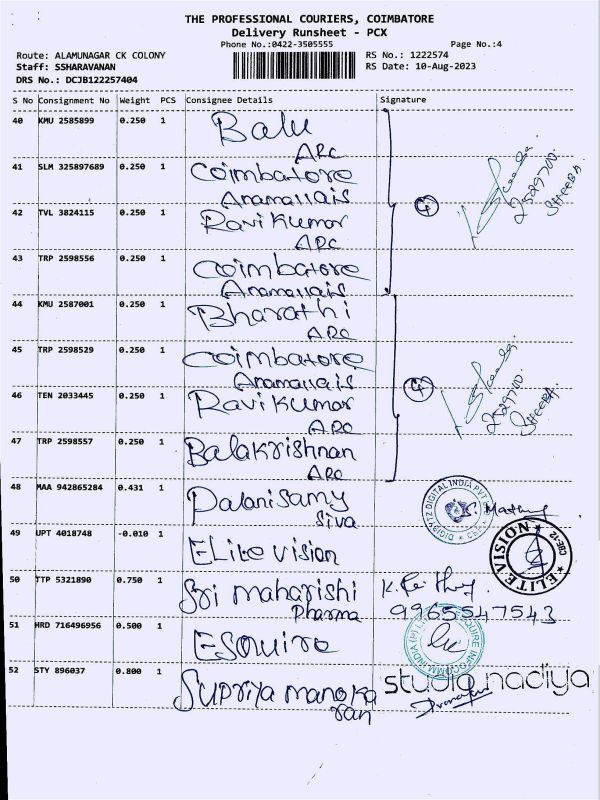 THE PROFESSIONAL COURIERS, COIMBATORE
Delivery Runsheet - PCX
Phone No.:0422-3505555 Page No.:4
Route: ALAMUNAGAR CK COLONY RS No.: 1222574
Staff: SSHARAVANAN RS Date: 10-Aug-2023
DRS No.: DCJB122257404
S No Consignment No Weight PCS Consignee Details Signature
40 KMU 2585899 0.250 1 Balu
ARC
41 SLM 325897689 0.250 1 Coimbatore
Anamallais
42 TVL 3824115 0.250 1 Ravi Kumar
ARC
4
2529700
SHEEBA
43 TRP 2598556 0.250 1 Coimbatore
Anamallais
44 KMU 2587001 0.250 1 Bharathi
ARC
45 TRP 2598529 0.250 1 Coimbatore
Anamallais
46 TEN 2033445 0.250 1 Ravi Kumar
ARC
4
2529700
SHEEBA
47 TRP 2598557 0.250 1 Balakrishnan
ARC
48 MAA 942865284 0.431 1 Palanisamy
Siva
DIGIBYTZ DIGITAL INDIA PVT
49 UPT 4018748 -0.010 1 Elite vision
ELITE VISION CBE-12
50 TTP 5321890 0.750 1 Sri maharishi
Pharma
9965547543
51 HRD 716496956 0.500 1 Esquire
52 STY 896037 0.800 1 Supriya manoka
ran
studio nadiya